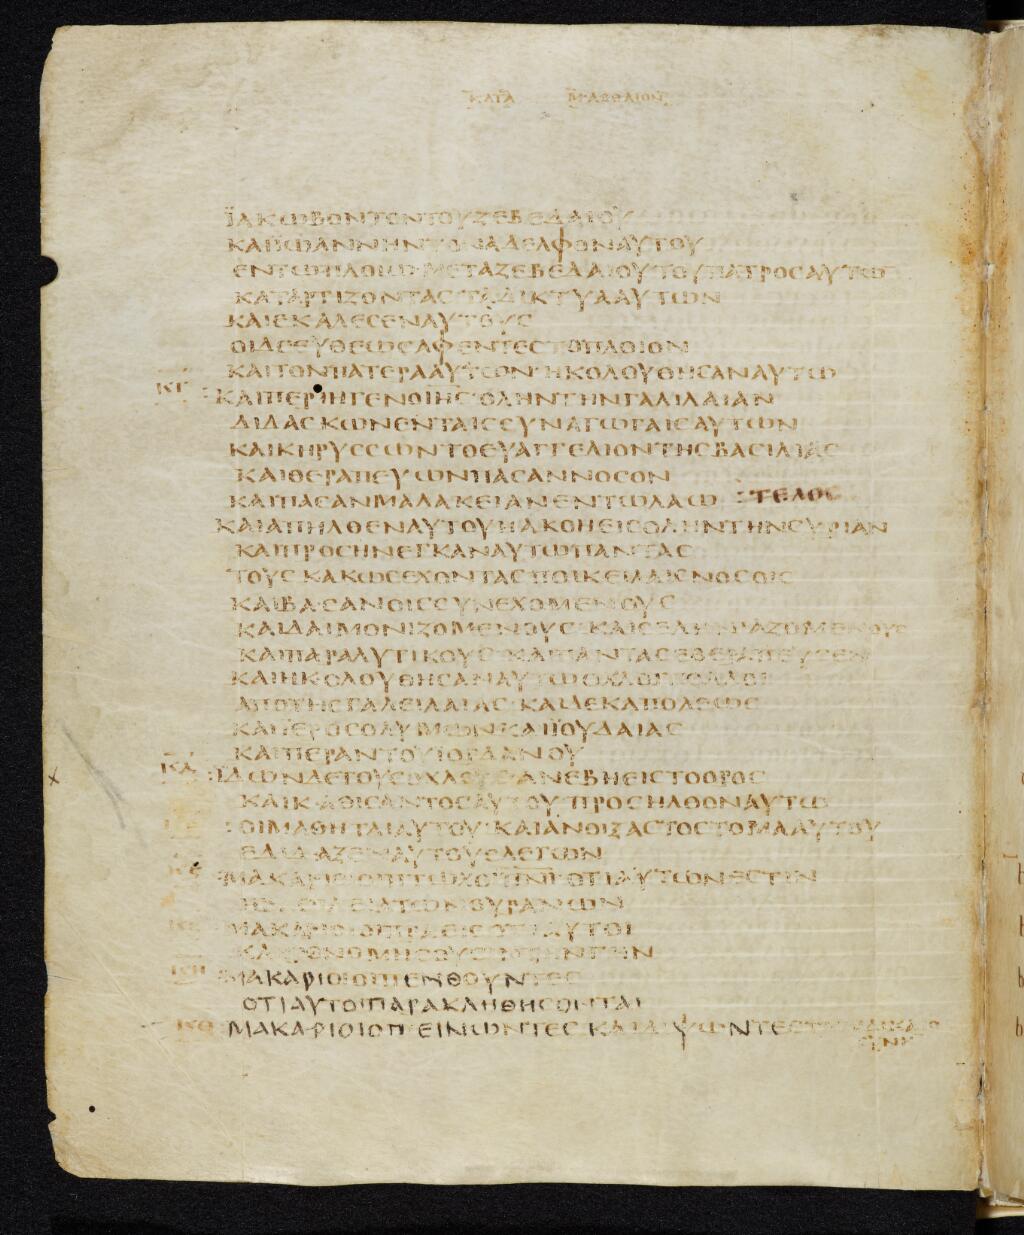 ΚΑΤΑ ΜΑΘΘΑΙΟΝ
ΪΑΚΩΒΟΝΤΟΝΤΟΥΖΕΒΕΔΑΙΟΥ
ΚΑΙΪΩΑΝΝΗΝΤΟΝΑΔΕΛΦΟΝΑΥΤΟΥ
ΕΝΤΩΠΛΟΙΩ·ΜΕΤΑΖΕΒΕΔΑΙΟΥΤΟΥΠΑΤΡΟΣΑΥΤΩ
ΚΑΤΑΡΤΙΖΟΝΤΑΣΤΑΔΙΚΤΥΑΑΥΤΩΝ
ΚΑΙΕΚΑΛΕΣΕΝΑΥΤΟΥΣ
ΟΙΔΕΕΥΘΕΩΣΑΦΕΝΤΕΣΤΟΠΛΟΙΟΝ
ΚΑΙΤΟΝΠΑΤΕΡΑΑΥΤΩΝ·ΗΚΟΛΟΥΘΗΣΑΝΑΥΤΩ
ΚΓ :ΚΑΙΠΕΡΙΗΓΕΝΟΙΗΣ·ΟΛΗΝΤΗΝΓΑΛΙΛΑΙΑΝ
ΔΙΔΑΣΚΩΝΕΝΤΑΙΣΣΥΝΑΓΩΓΑΙΣΑΥΤΩΝ
ΚΑΙΚΗΡΥΣΣΩΝΤΟΕΥΑΓΓΕΛΙΟΝΤΗΣΒΑΣΙΛΙΑΣ
ΚΑΙΘΕΡΑΠΕΥΩΝΠΑΣΑΝΝΟΣΟΝ
ΚΑΙΠΑΣΑΝΜΑΛΑΚΕΙΑΝΕΝΤΩΛΑΩ :ΤΕΛΟΣ
ΚΑΙΑΠΗΛΘΕΝΑΥΤΟΥΗΑΚΟΗΕΙΣΟΛΗΝΤΗΝΣΥΡΙΑΝ
ΚΑΙΠΡΟΣΗΝΕΓΚΑΝΑΥΤΩΠΑΝΤΑΣ
ΤΟΥΣΚΑΚΩΣΕΧΟΝΤΑΣΠΟΙΚΕΙΛΑΙΣΝΟΣΟΙΣ
ΚΑΙΒΑΣΑΝΟΙΣΣΥΝΕΧΟΜΕΝΟΥΣ
ΚΑΙΔΑΙΜΟΝΙΖΟΜΕΝΟΥΣ·ΚΑΙΣΕΛΗΝΙΑΖΟΜΕΝΟΥΣ
ΚΑΙΠΑΡΑΛΥΤΙΚΟΥΣ·ΚΑΙΠΑΝΤΑΣΕΘΕΡΑΠΕΥΣΕΝ
ΚΑΙΗΚΟΛΟΥΘΗΣΑΝΑΥΤΩΟΧΛΟΙΠΟΛΛΟΙ
ΑΠΟΤΗΣΓΑΛΕΙΛΑΙΑΣ·ΚΑΙΔΕΚΑΠΟΛΕΩΣ
ΚΑΙΪΕΡΟΣΟΛΥΜΩΝΚΑΙΪΟΥΔΑΙΑΣ
ΚΑΙΠΕΡΑΝΤΟΥΙΟΡΔΑΝΟΥ
ΚΔ :ΪΔΩΝΔΕΤΟΥΣΟΧΛΟΥΣ·ΑΝΕΒΗΕΙΣΤΟΟΡΟΣ
ΚΑΙΚΑΘΙΣΑΝΤΟΣΑΥΤΟΥ·ΠΡΟΣΗΛΘΟΝΑΥΤΩ
:ΟΙΜΑΘΗΤΑΙΑΥΤΟΥ·ΚΑΙΑΝΟΙΞΑΣΤΟΣΤΟΜΑΑΥΤΟΥ
ΕΔΙΔΑΞΕΝΑΥΤΟΥΣΛΕΓΩΝ
:ΜΑΚΑΡΙΟΙΟΙΠΤΩΧΟΙΤΩΠΝΙ·ΟΤΙΑΥΤΩΝΕΣΤΙΝ
ΗΒΑΣΙΛΕΙΑΤΩΝΟΥΡΑΝΩΝ
ΜΑΚΑΡΙΟΙΟΙΠΡΑΕΙΣΟΤΙΑΥΤΟΙ
ΚΛΗΡΟΝΟΜΗΣΟΥΣΙΝΤΗΝΓΗΝ
ΚΗ :ΜΑΚΑΡΙΟΙΟΙΠΕΝΘΟΥΝΤΕΣ
ΟΤΙΑΥΤΟΙΠΑΡΑΚΛΗΘΗΣΟΝΤΑΙ
ΚΘ :ΜΑΚΑΡΙΟΙΟΙΠΕΙΝΩΝΤΕΣΚΑΙΔΙΨΩΝΤΕΣΤΗΝΔΙΚΑΙΟ
ΣΥΝΗ